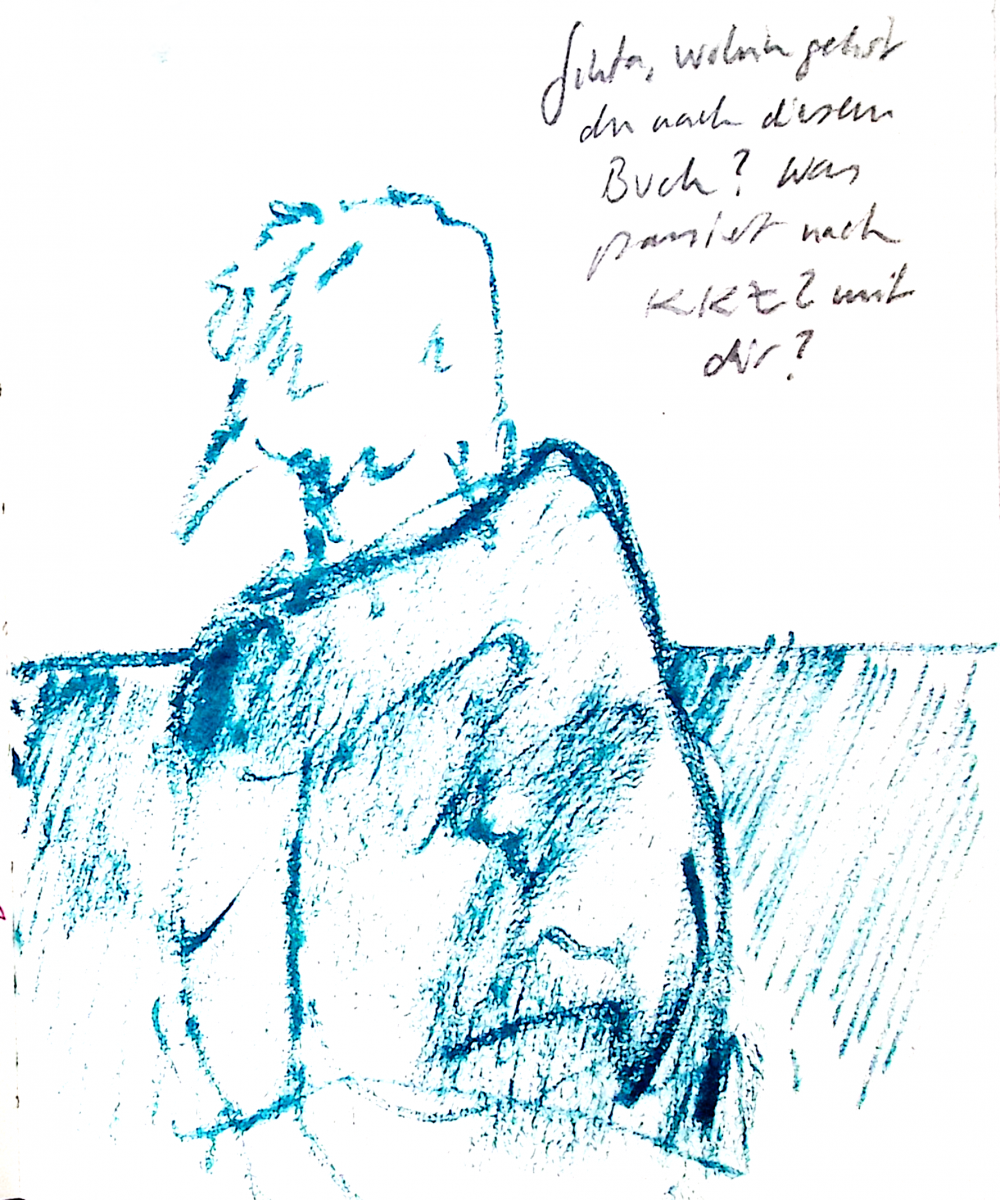 Jikta, wohin gehst
du nach diesem
Buch? Was
passiert nach
KKZ? mit
dir?